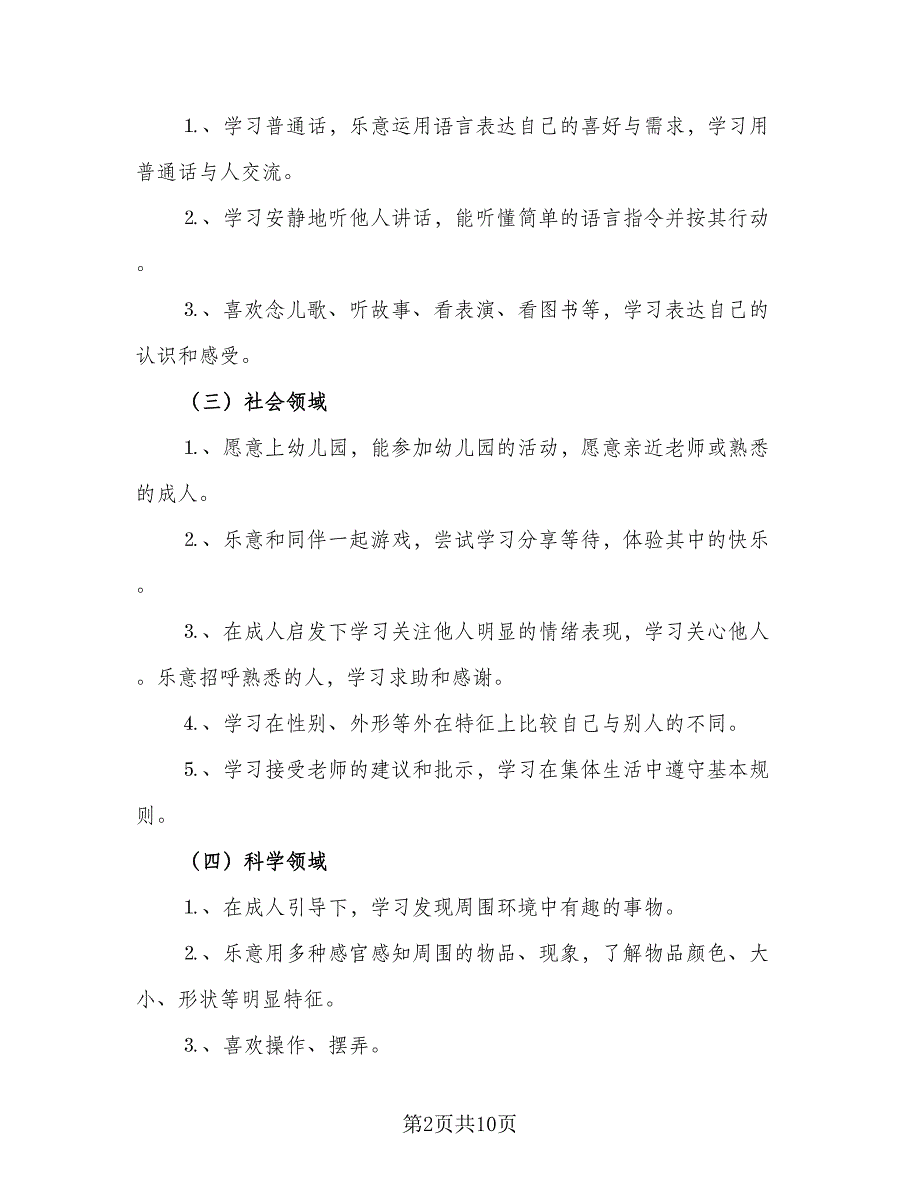 1.、学习普通话，乐意运用语言表达自己的喜好与需求，学习用
普通话与人交流。
2.、学习安静地听他人讲话，能听懂简单的语言指令并按其行动
。
3.、喜欢念儿歌、听故事、看表演、看图书等，学习表达自己的
认识和感受。
（三）社会领域
1.、愿意上幼儿园，能参加幼儿园的活动，愿意亲近老师或熟悉
的成人。
2.、乐意和同伴一起游戏，尝试学习分享等待，体验其中的快乐
。
3.、在成人启发下学习关注他人明显的情绪表现，学习关心他人
。乐意招呼熟悉的人，学习求助和感谢。
4.、学习在性别、外形等外在特征上比较自己与别人的不同。
5.、学习接受老师的建议和批示，学习在集体生活中遵守基本规
则。
（四）科学领域
1.、在成人引导下，学习发现周围环境中有趣的事物。
2.、乐意用多种感官感知周围的物品、现象，了解物品颜色、大
小、形状等明显特征。
3.、喜欢操作、摆弄。
第2页共10页